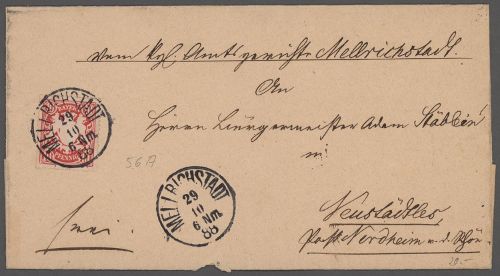 vom kgl. Amtsgerichte Mellrichstadt.
An
Herrn Bürgermeister Adam Stäblein
in
Neustädtles,
Post Nordheim v. d. Rhön
frei.
MELLRICHSTADT
29
10
6 Nm.
88
PFENNIG
56 A
MELLRICHSTADT
29
10
6 Nm.
88
20.-